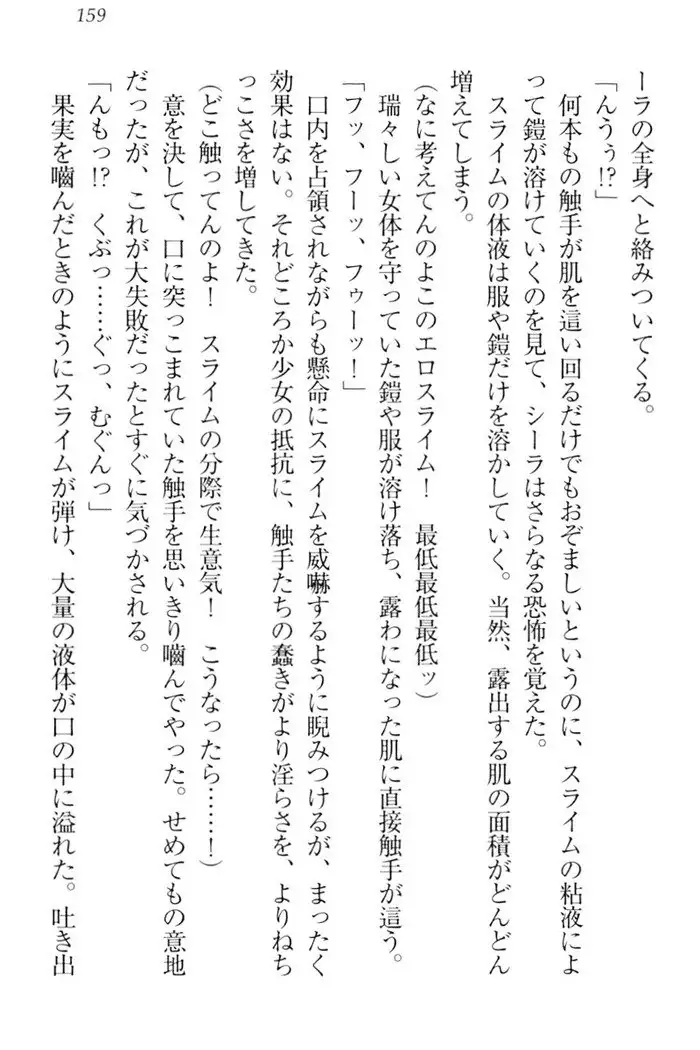 159
ーラの全身へと絡みついてくる。
「んうぅ!?」
何本もの触手が肌を這い回るだけでもおぞましいというのに、スライムの粘液によ
って鎧が溶けていくのを見て、シーラはさらなる恐怖を覚えた。
スライムの体液は服や鎧だけを溶かしていく。当然、露出する肌の面積がどんどん
増えてしまう。
(なに考えてんのよこのエロスライム! 最低最低最低ッ)
瑞々しい女体を守っていた鎧や服が溶け落ち、露わになった肌に直接触手が這う。
「フッ、フーッ、フゥーッ!」
口内を占領されながらも懸命にスライムを威嚇するように睨みつけるが、まったく
効果はない。それどころか少女の抵抗に、触手たちの蠢きがより淫らさを、よりねち
っこさを増してきた。
(どこ触ってんのよ! スライムの分際で生意気! こうなったら………!)
意を決して、口に突っこまれていた触手を思いきり嚙んでやった。せめてもの意地
だったが、これが大失敗だったとすぐに気づかされる。
「んもっ!? くぶっ……ぐっ、むぐんっ」
果実を嚙んだときのようにスライムが弾け、大量の液体が口の中に溢れた。吐き出